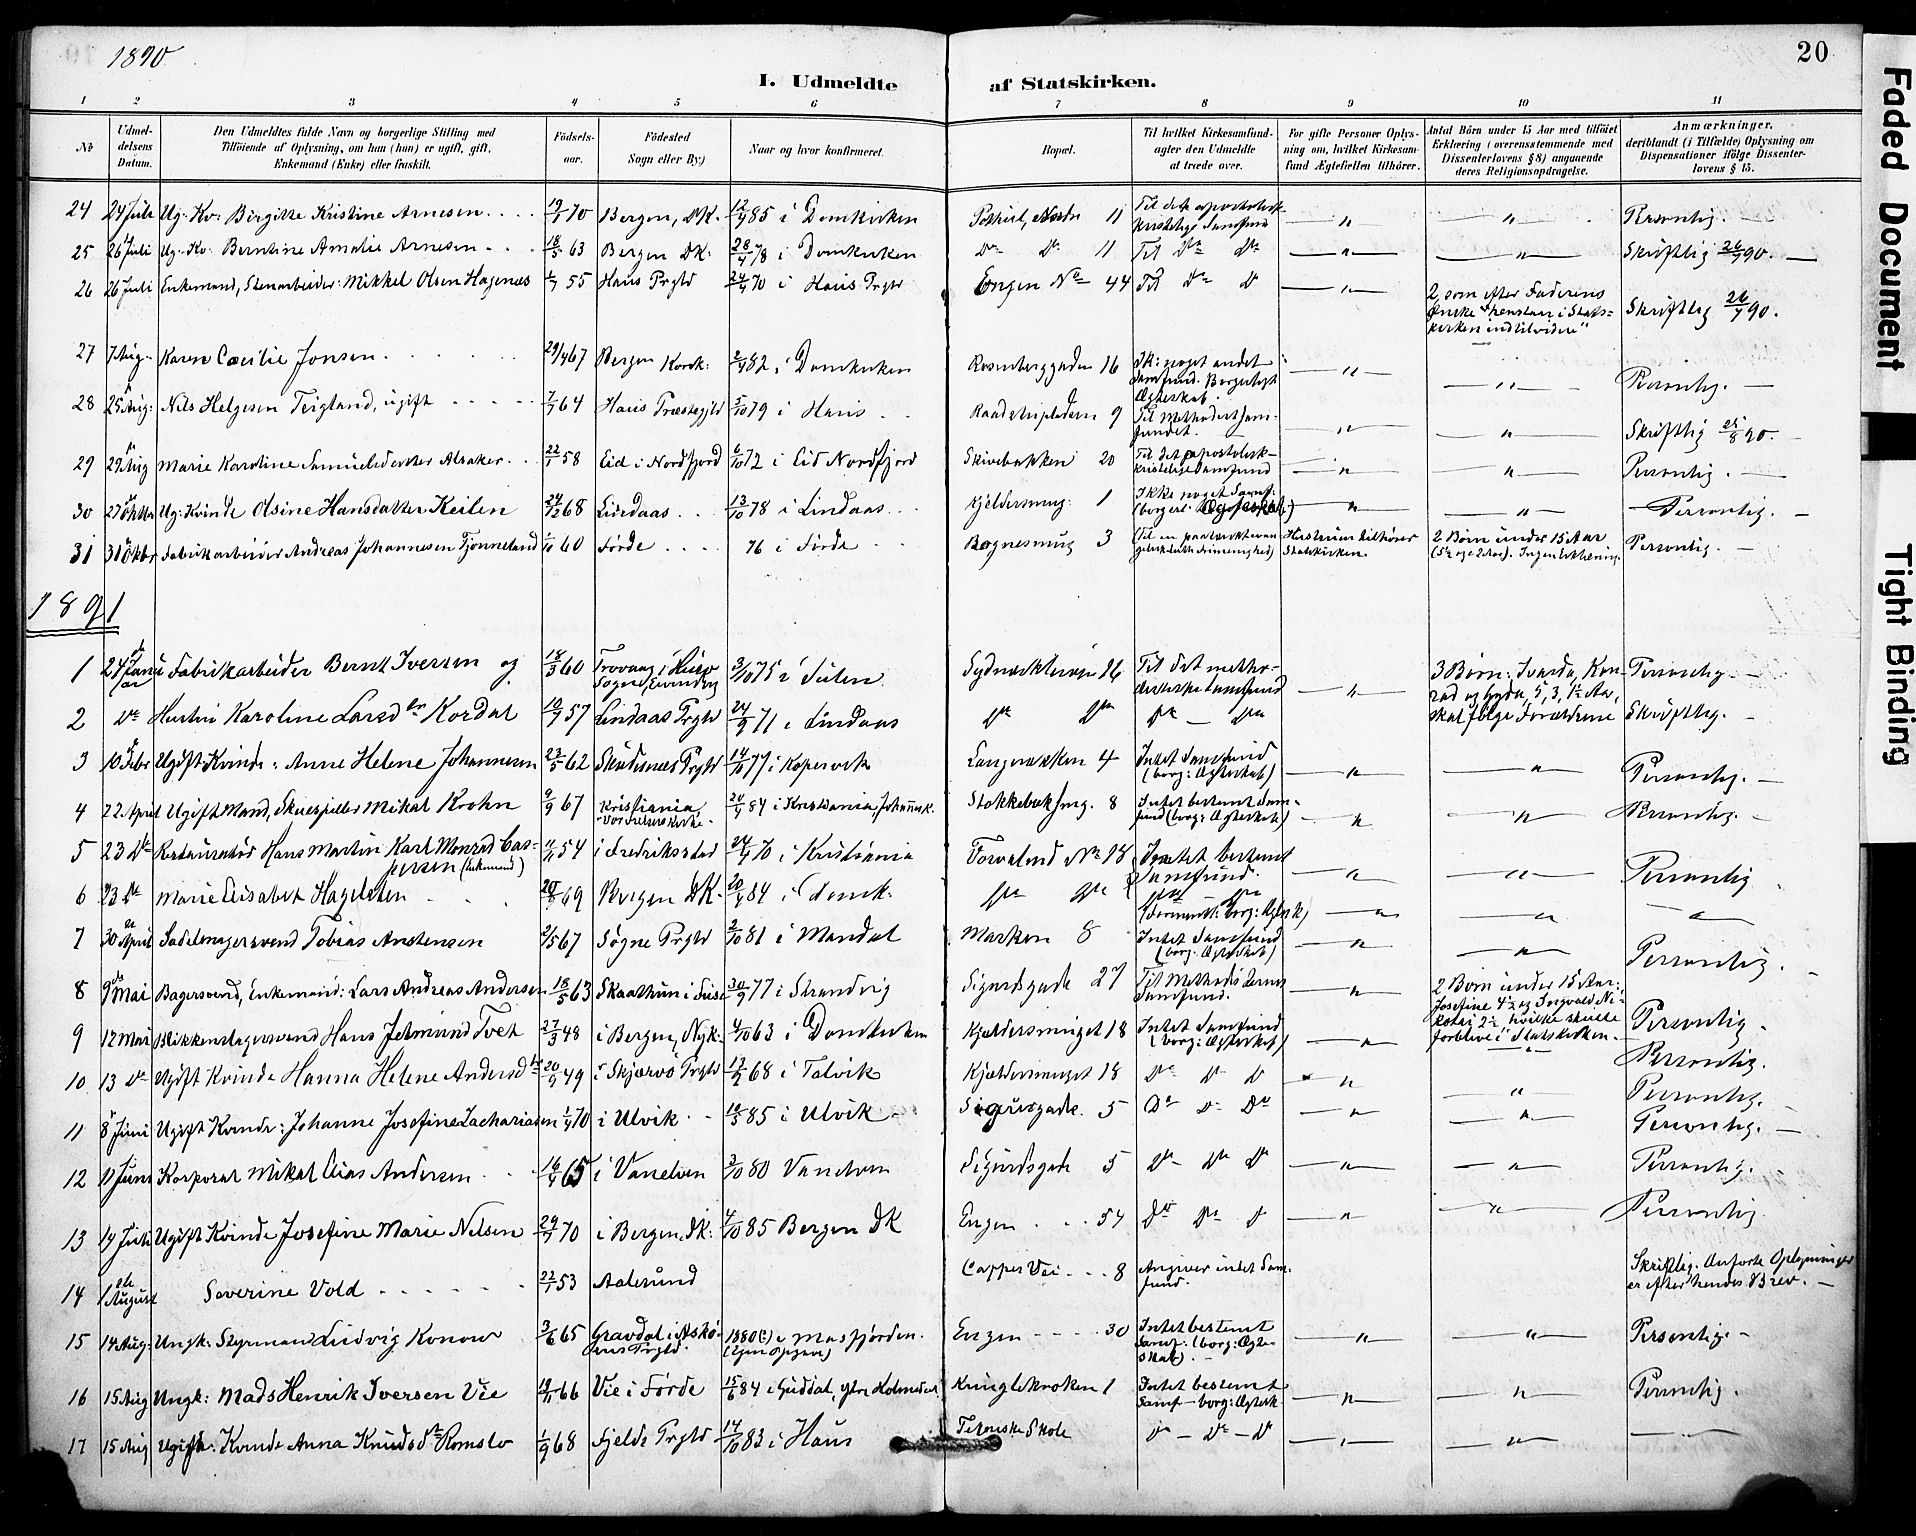 1890
20
I. Udmeldte af Statskirken.
1 2 3 4 5 6 7 8 9 10 11
No
Udmel-
delsens
Datum.
Den Udmeldtes fulde Navn og borgerlige Stilling med
Tilføiende af Oplysning, om han (hun) er ugift, gift,
Enkemand (Enke) eller fraskilt.
Fødsels-
aar.
Fødested
Sogn eller By)
Naar og hvor konfirmeret.
Bopæl.
Til hvilket Kirkesamfund
agter den Udmeldte
at træde over.
For gifte Personer Oplys-
ning om, hvilket Kirkesam-
fund Ægtefællen tilhører.
Antal Børn under 15 Aar med tilføiet
Erklæring (overensstemmende med
Dissenterlovens § 8) angaaende
deres Religionsopdragelse.
Anmærkninger,
deriblandt (i Tilfælde) Oplysning om
Dispensationer ifølge Dissenter-
lovens § 15.
24 24 Juli Ug. Kv: Birgitte Kristine Arnesen 70 Bergen, DK. 85 i Domkirken 11 Til det apostolisk kristelige Samfund " " Personlig.
25 26 Juli Ug. Kv: Berntine Amalie Arnesen 18/5 63 Bergen DK: 28/4 78 i Domkirken Do Do 11 Til Do Do " " Skriftlig 26/7 90.
26 26 Juli Enkemand, Stenarbeider: Mikkel Olsen Hagenæs 55 Haus Prgld 24/4 70 i Haus Prgld Engen No 44 Til Do D " 2, som efter Faderens Ønske "henstaar i Stats-kirken indtilvidere" Skriftlig 26/7 90.
27 7 Aug. Karen Cæcilie Jonsen 29/4 67 Bergen Korsk: 82 i Domkirken Rosenberggaden 16 Ik: noget andet Samfund. Borgerligt Ægteskab. " " Personlig.
28 25 Aug: Nils Helgesen Teigland, ugift 7/7 64 Haus Præstegjld 5/10 79 i Haus 9 Til Methodistsam-fundet. " " Skriftlig 25/8 90.
29 29 Aug Marie Karoline Samuelsdatter 22/1 58 Eid i Nordfjord 6/10 72 i Eid Nordfjord Skivebakken 20 Til det apostolisk-kristelige Samfund " " Personlig.
30 27 Oktbr Ug: Kvinde Olsine Hansdatter Keilen 24/12 68 Lindaas 13/10 78 i Lindaas Kjeldersmug: 1 Ikke noget Samf. (borgerl. Ægteskab) " " Personlig.
31 31 Oktbr Fabrikarbeider Andreas Johannesen Tjønneland 1/10 60 Førde 76 i Førde 3 Hustruen tilhører Statskirken. 2 Børn under 15 Aar (5½ og 2 Aar). Ingen Erklæring. Personlig.
1891
1 24 Janu ar Fabrikarbeider Bernt Iversen og 18/3 60 Sogne, Eivindvig 3/10 75 i Sulen 16 Til det metho-distiske Samfund " 3 Børn: Kon-rad og Gyda, 5, 3, 1½ Aar, skal følge Forældrene Personlig.
2 Do Hustru Karoline Larsdtr Kordal 10/7 57 Lindaas Prgld 24/9 71 i Lindaas Do Do Do Do Skriftlig.
3 10 Febr Ugift Kvinde: Anne Helene Johannesen 23/5 62 Skudesnæs Prgld 14/10 77 i Kopervik 4 Intet Samfund (borg: Ægteskab) " " Personlig.
4 22 April Ugift Mand, Skuespiller Mikal Krohn 9/9 67 Kristiania Vor Frelsers Kirke 20/4 84 i Kristiania, Johannesk. 8 Intet bestemt Sam-fund (borg: Ægteskab) " " Personlig.
5 23 Do Restauratør Hans Martin Karl Monrad Cas-persen (Enkemand) 54 i Fredriksstad 24/4 70 i Kristiania No 18 Intet bestemt Samfund. " " Personlig
6 23 Do Marie Elisabet Hagelsten 69 Bergen DK. 20/4 84 i Domk. Do Do Do Do " " "
7 30 April Sadelmagersvend Tobias Anstensen 2/5 67 Søgne Prgld 2/10 81 i Mandal Marken 8 Intet Samfund (borg: Ægteskab) " " Personlig.
8 9 Mai Bagersvend, Enkemand: Lars Andreas Andersen 18/5 63 30/9 77 i Strandvig Sigurdsgade 27 Til Methodisternes Samfund. " 2 Børn under 15 Aar: Josefine 4½ og Ingvald Ni-kolai 2½ hvilke skulle forblive i Statskirken. Personlig.
9 12 Mai Blikkenslagersvend Hans Jetmund Tvet 27/3 48 i Bergen, Nyk. 4/10 63 i Domkirken Kjældersmuget 18 Intet Samfund (borg: Ægteskab) " " Personlig.
10 13 Do Ugift Kvinde Hanna Helene Andersdtr 20/9 49 i Skjærvø Prgld 68 i Talvik Kjældersmuget 18 Do D D " " Personlig.
11 8 Juni Ugift Kvinde: Johanne Josefine Zachariasen 70 i Ulvik 85 i Ulvik Sigursgade. 5 Do D Do " " Personlig.
12 11 Juni Korporal Mikal Elias Andersen 16/4 65 i Vanelven 3/10 80 Vanelven Sigurdsgade 5 Do Do D " " Personlig.
13 Ugift Kvinde Josefine Marie Nilsen 70 i Bergen, DK: 4/10 85 Bergen DK Engen 54 Do Do D " " Personlig
14 1 August Severine Vold 22/7 53 Aalesund Cappes Vei 8 Angiver intet Sam-fund. Skriftlig. Anførte Oplysninger er efter hendes Brev.
15 14 Aug: Ungk. Styrmand Ludvig Konow 3/6 65 Gravdal i Askø-ens Prgld. 1880(?) i Masfjorden. Engen 30 Intet bestemt Samf: (borg: Ægte-skab). " " Personlig.
16 15 Aug Ungk: Mads Henrik Iversen Vie 66 Vie i Førde 15/6 84 i Guddal, ytre Holmedal Kringlekroken 1 Intet bestemt Samf - borg: Ægtesk. " " Personlig.
17 15 Aug Ugift: Kvinde Anna Knudsdtr Romslo 1/9 68 Fjelde Prgld 14/10 83 i Haus Tekniske Skole D - Do - D " "
Faded Document
Tight Binding